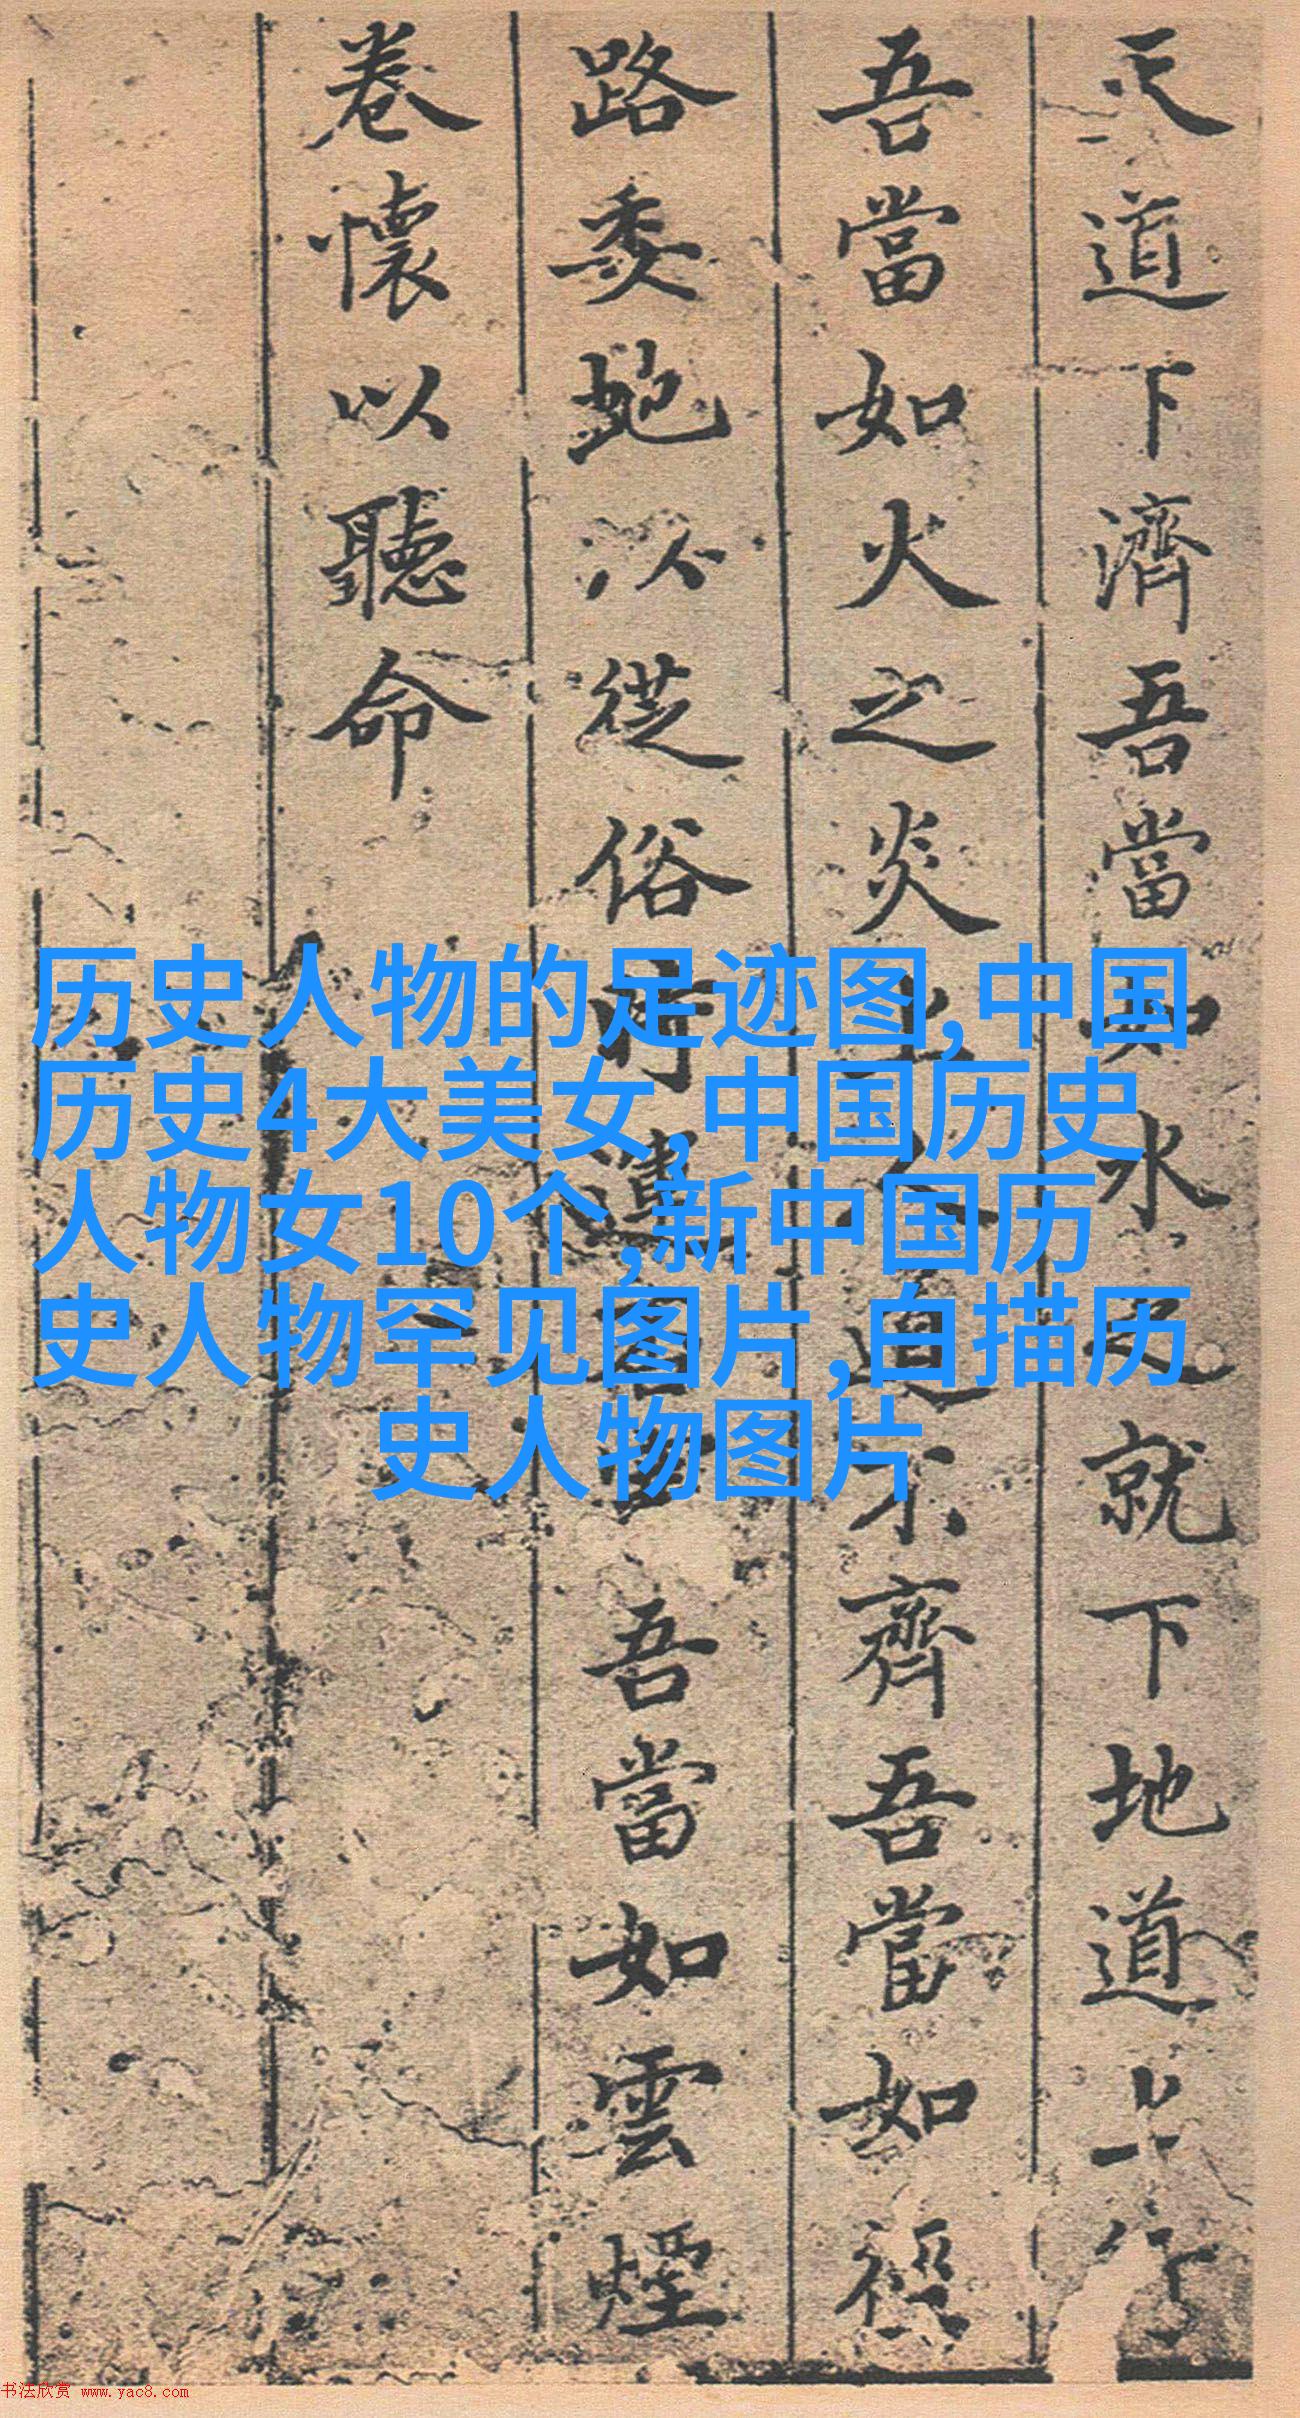 天道下濟吾當如水之就下地道上行
吾當如火之炎上人道不齊吾當如
路委虵以從俗時遭吾當如雲煙
卷懷以聽命
历史人物的足迹图,中国
历史4大美女,中国历史
人物女10个,新中国历
史人物罕见图片,白描历
史人物图片
书法欣赏 www.yac8.com